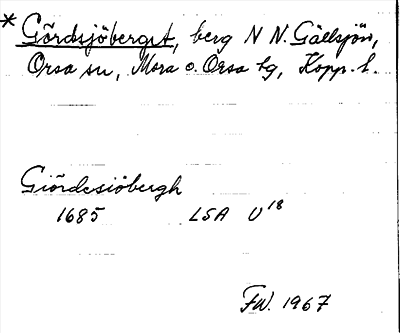 * Gördsjöberget, berg N N. Gällsjön,
Orsa sn, Mora o. Orsa tg, Kopp. l.
Giördesiöbergh
1685 LSA U18
FW. 1967